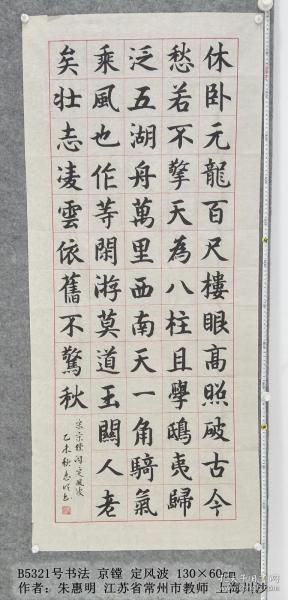 休卧元龍百尺樓眼高照破古今
愁若不擎天為八柱且學鴟夷歸
泛五湖舟萬里西南天一角騎氣
乘風也作等閑游莫道玉關人老
矣壮志凌雲依舊不驚秋
宋京鏜詞定風波
乙未秋惠明書
B5321号书法 京镗 定风波 130×60cm
作者：朱惠明 江苏省常州市教师 上海川沙